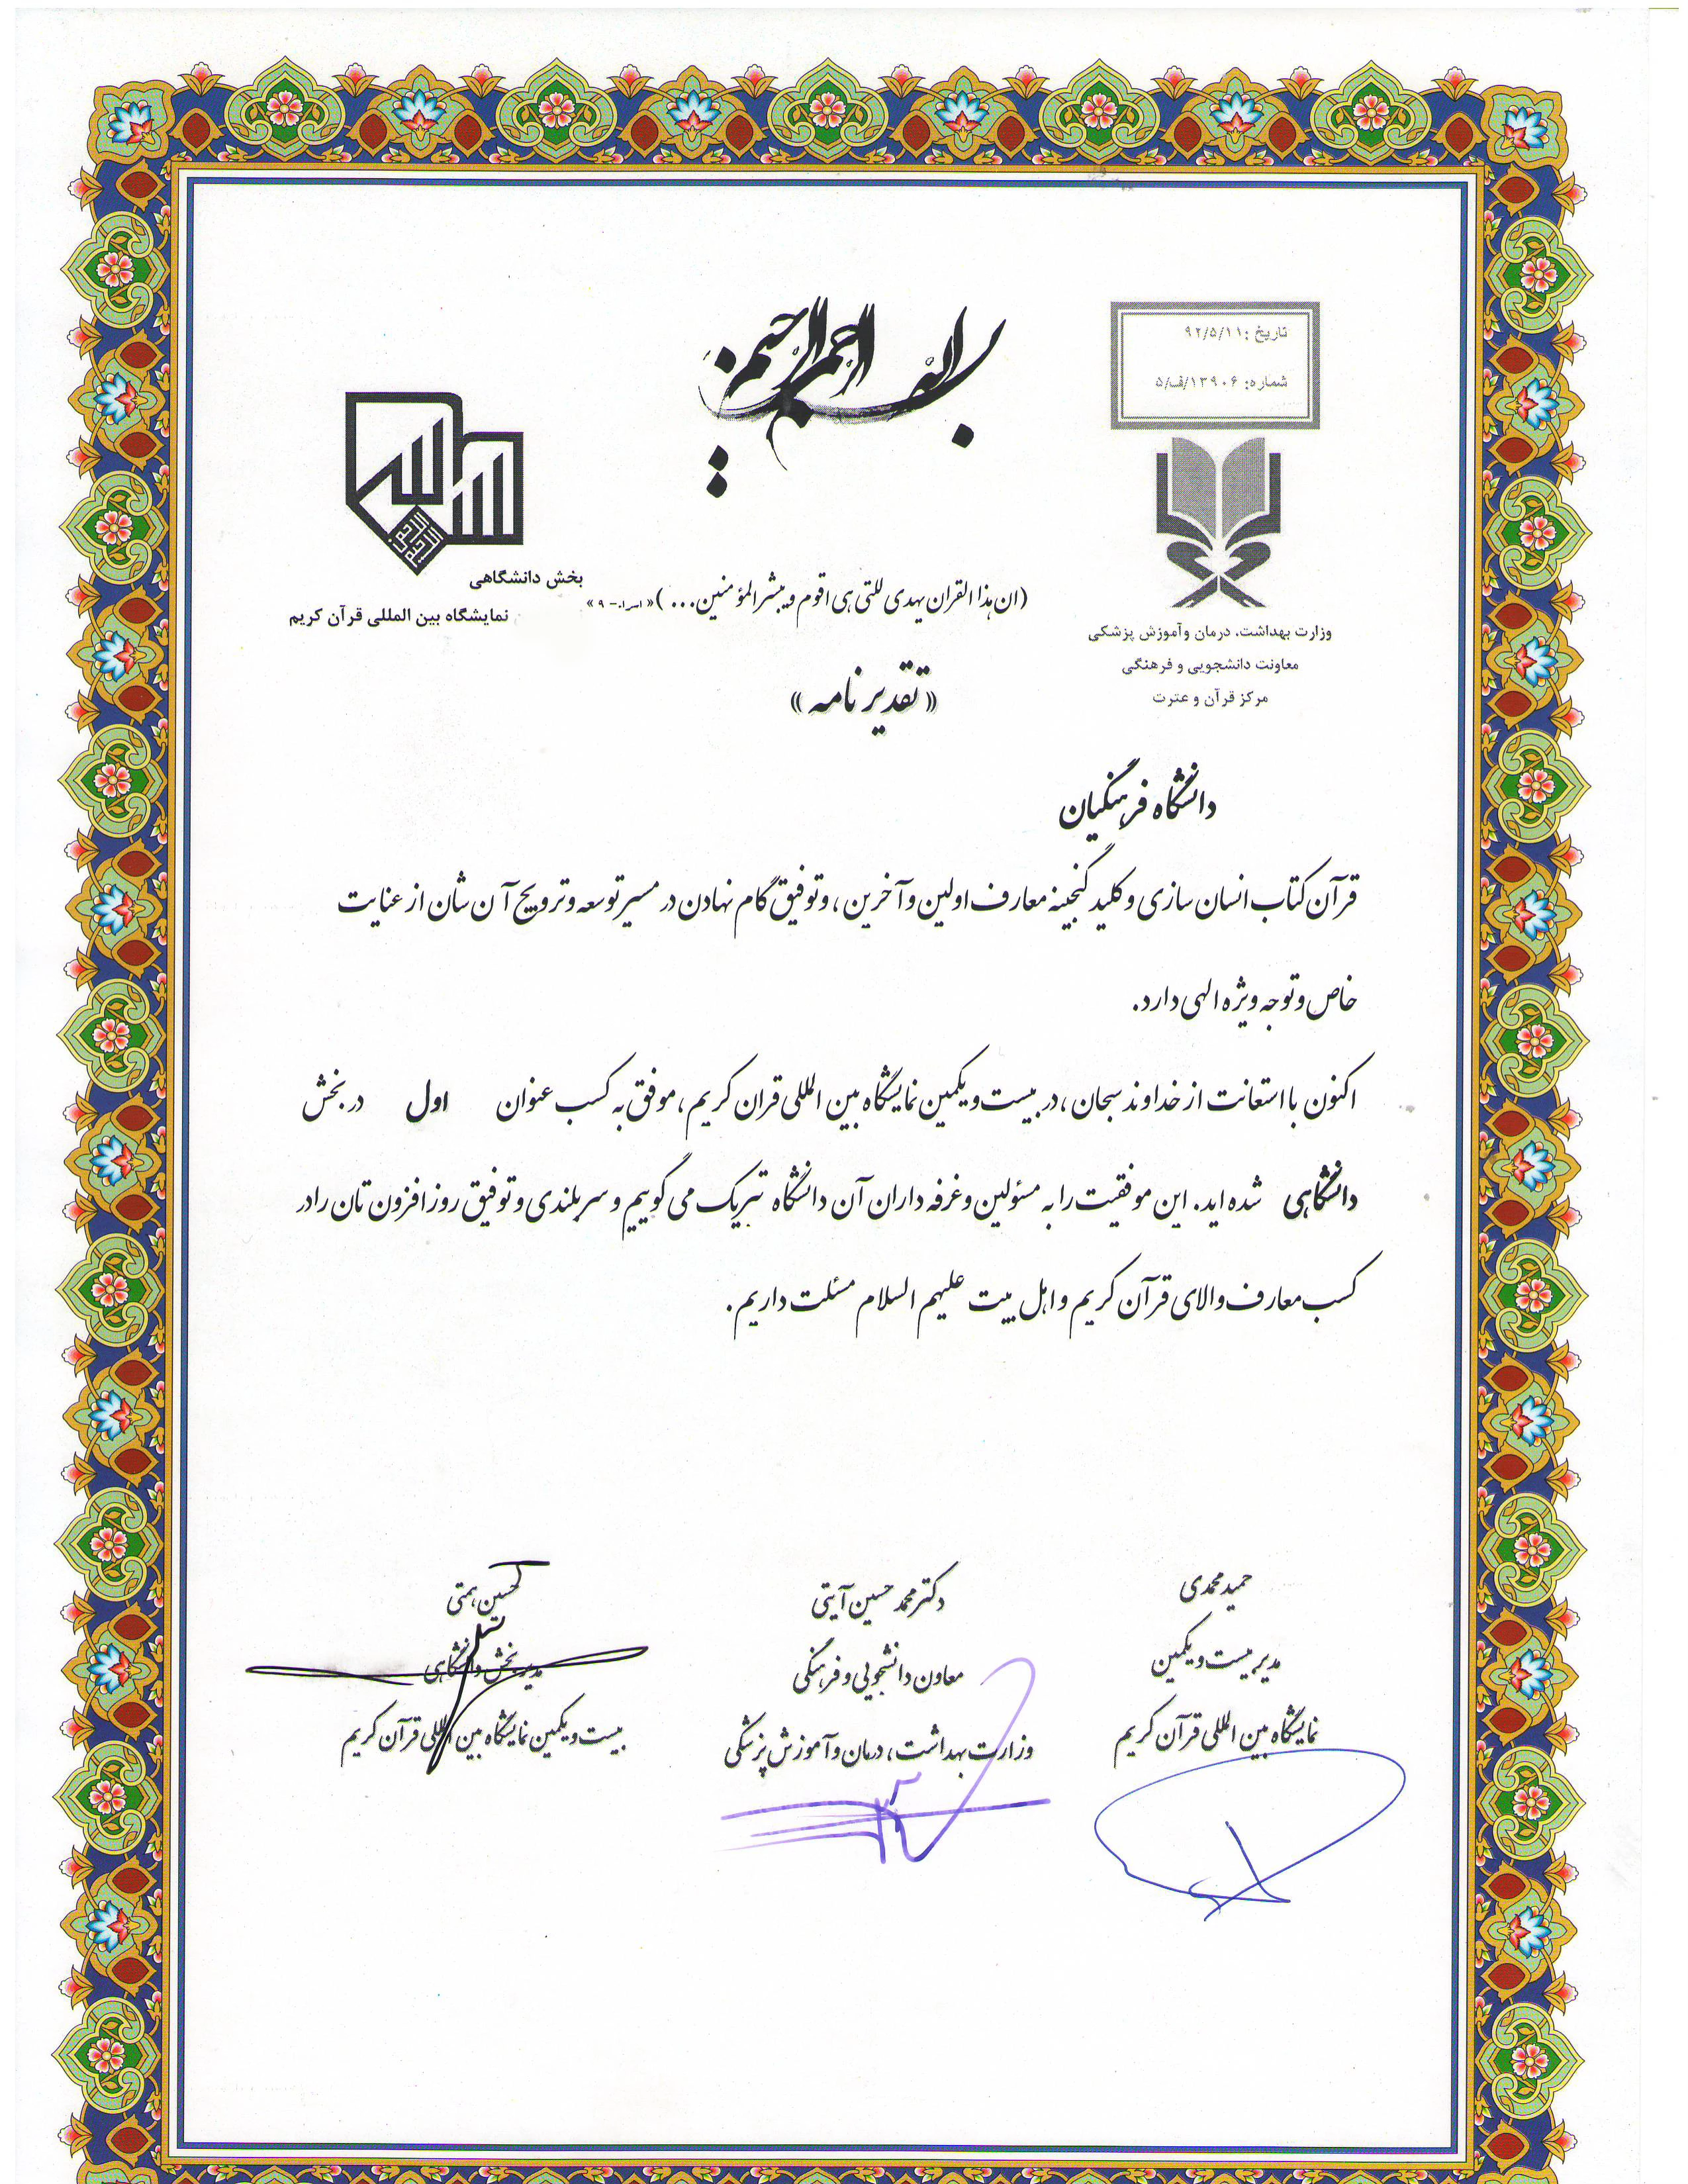 بسم الله الرحمن الرحیم
تاریخ :۹۲/۵/۱۱
شماره: ۱۳۹۰۶/ف/۵
وزارت بهداشت، درمان وآموزش پزشکی
معاونت دانشجویی و فرهنگی
مرکز قرآن و عترت
بخش دانشگاهی
نمایشگاه بین المللی قرآن کریم
(ان هذا القران یهدی للتی هی اقوم و یبشر المؤمنین...)«اسراء-۹»
«تقدیر نامه»
دانشگاه فرهنگیان
قرآن کتاب انسان سازی و کلید گنجینه معارف اولین و آخرین، و توفیق گام نهادن در مسیر توسعه و ترویج آن نشان از عنایت
خاص و توجه ویژه الهی دارد.
اکنون با استعانت از خداوند سبحان، در بیست و یکمین نمایشگاه بین المللی قران کریم، موفق به کسب عنوان اول در بخش
دانشگاهی شده اید. این موفقیت را به مسئولین و غرفه داران آن دانشگاه تبریک می گوییم و سربلندی و توفیق روز افزون تان را در
کسب معارف والای قرآن کریم و اهل بیت علیهم السلام مسئلت داریم.
حمید محمدی
مدیر بیست و یکمین
نمایشگاه بین المللی قرآن کریم
دکتر محمد حسین آیتی
معاون دانشجویی و فرهنگی
وزارت بهداشت، درمان و آموزش پزشکی
حسین همتی
مدیر بخش دانشگاهی
بیست و یکمین نمایشگاه بین المللی قرآن کریم